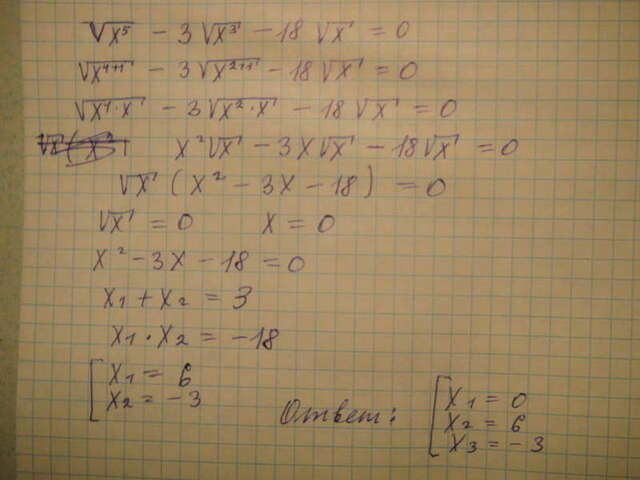 √x⁵ - 3√x³ - 18√x = 0
√x⁴⁺¹ - 3√x²⁺¹ - 18√x = 0
√x⁴·x - 3√x²·x - 18√x = 0
x²√x - 3x√x - 18√x = 0
√x (x² - 3x - 18) = 0
√x = 0 x = 0
x² - 3x - 18 = 0
x₁ + x₂ = 3
x₁ · x₂ = -18
[x₁ = 6
x₂ = -3
Ответ: [x₁ = 0
x₂ = 6
x₃ = -3